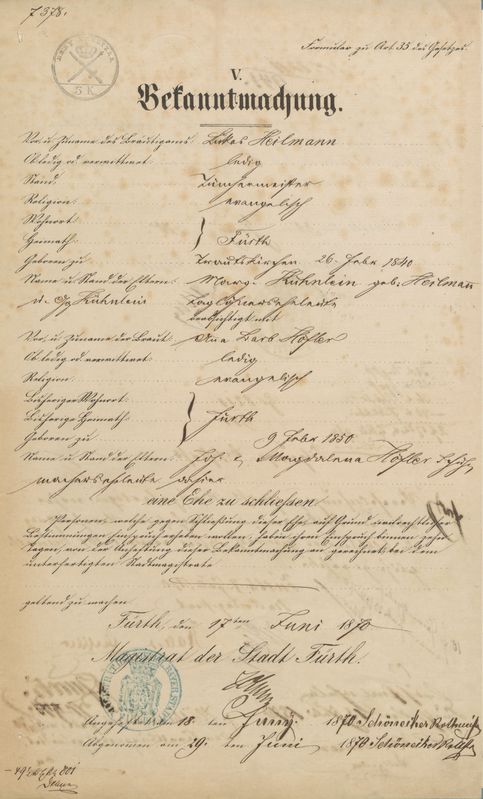 7378.
Formular zu Art. 35 des Gesetzes.
5 K
V.
Bekanntmachung.
Vor- u. Zuname des Bräutigams: Lukas Heilmann
Ob ledig od. verwittwet: ledig
Stand: Tünchermeister
Religion: evangelisch
Wohnort:
Heimath: } Fürth
Geboren zu Trautskirchen 26. Febr 1840
Name u. Stand der Eltern: Marg. Hühnlein geb. Heilman
u. Hühnlein Taglöhnerseheleute
beabsichtigt mit
Vor- u. Zuname der Braut: Ana Barb Höfler
Ob ledig od. verwittwet: ledig
Religion: evangelisch
Bisheriger Wohnort:
Bisherige Heimath: } Fürth
Geboren zu 9 Febr 1850
Name u. Stand der Eltern: Joh. u. Magdalena Höfler Schuh-
macherseheleute dahier
eine Ehe zu schliessen.
Personen, welche gegen Schließung dieser Ehe auf Grund civilrechtlicher
Bestimmungen Einspruch erheben wollen, haben ihren Einspruch binnen zehn
Tagen, von der Anheftung dieser Bekanntmachung an gerechnet, bei dem
unterfertigten Stadtmagistrate
geltend zu machen.
Fürth, den 17ten Juni 1870
Magistrat der Stadt Fürth.
Angeheftet am 18. ten Juny 1870 Schöneicher
Abgenomen am 29. ten Juni 1870 Schöneicher